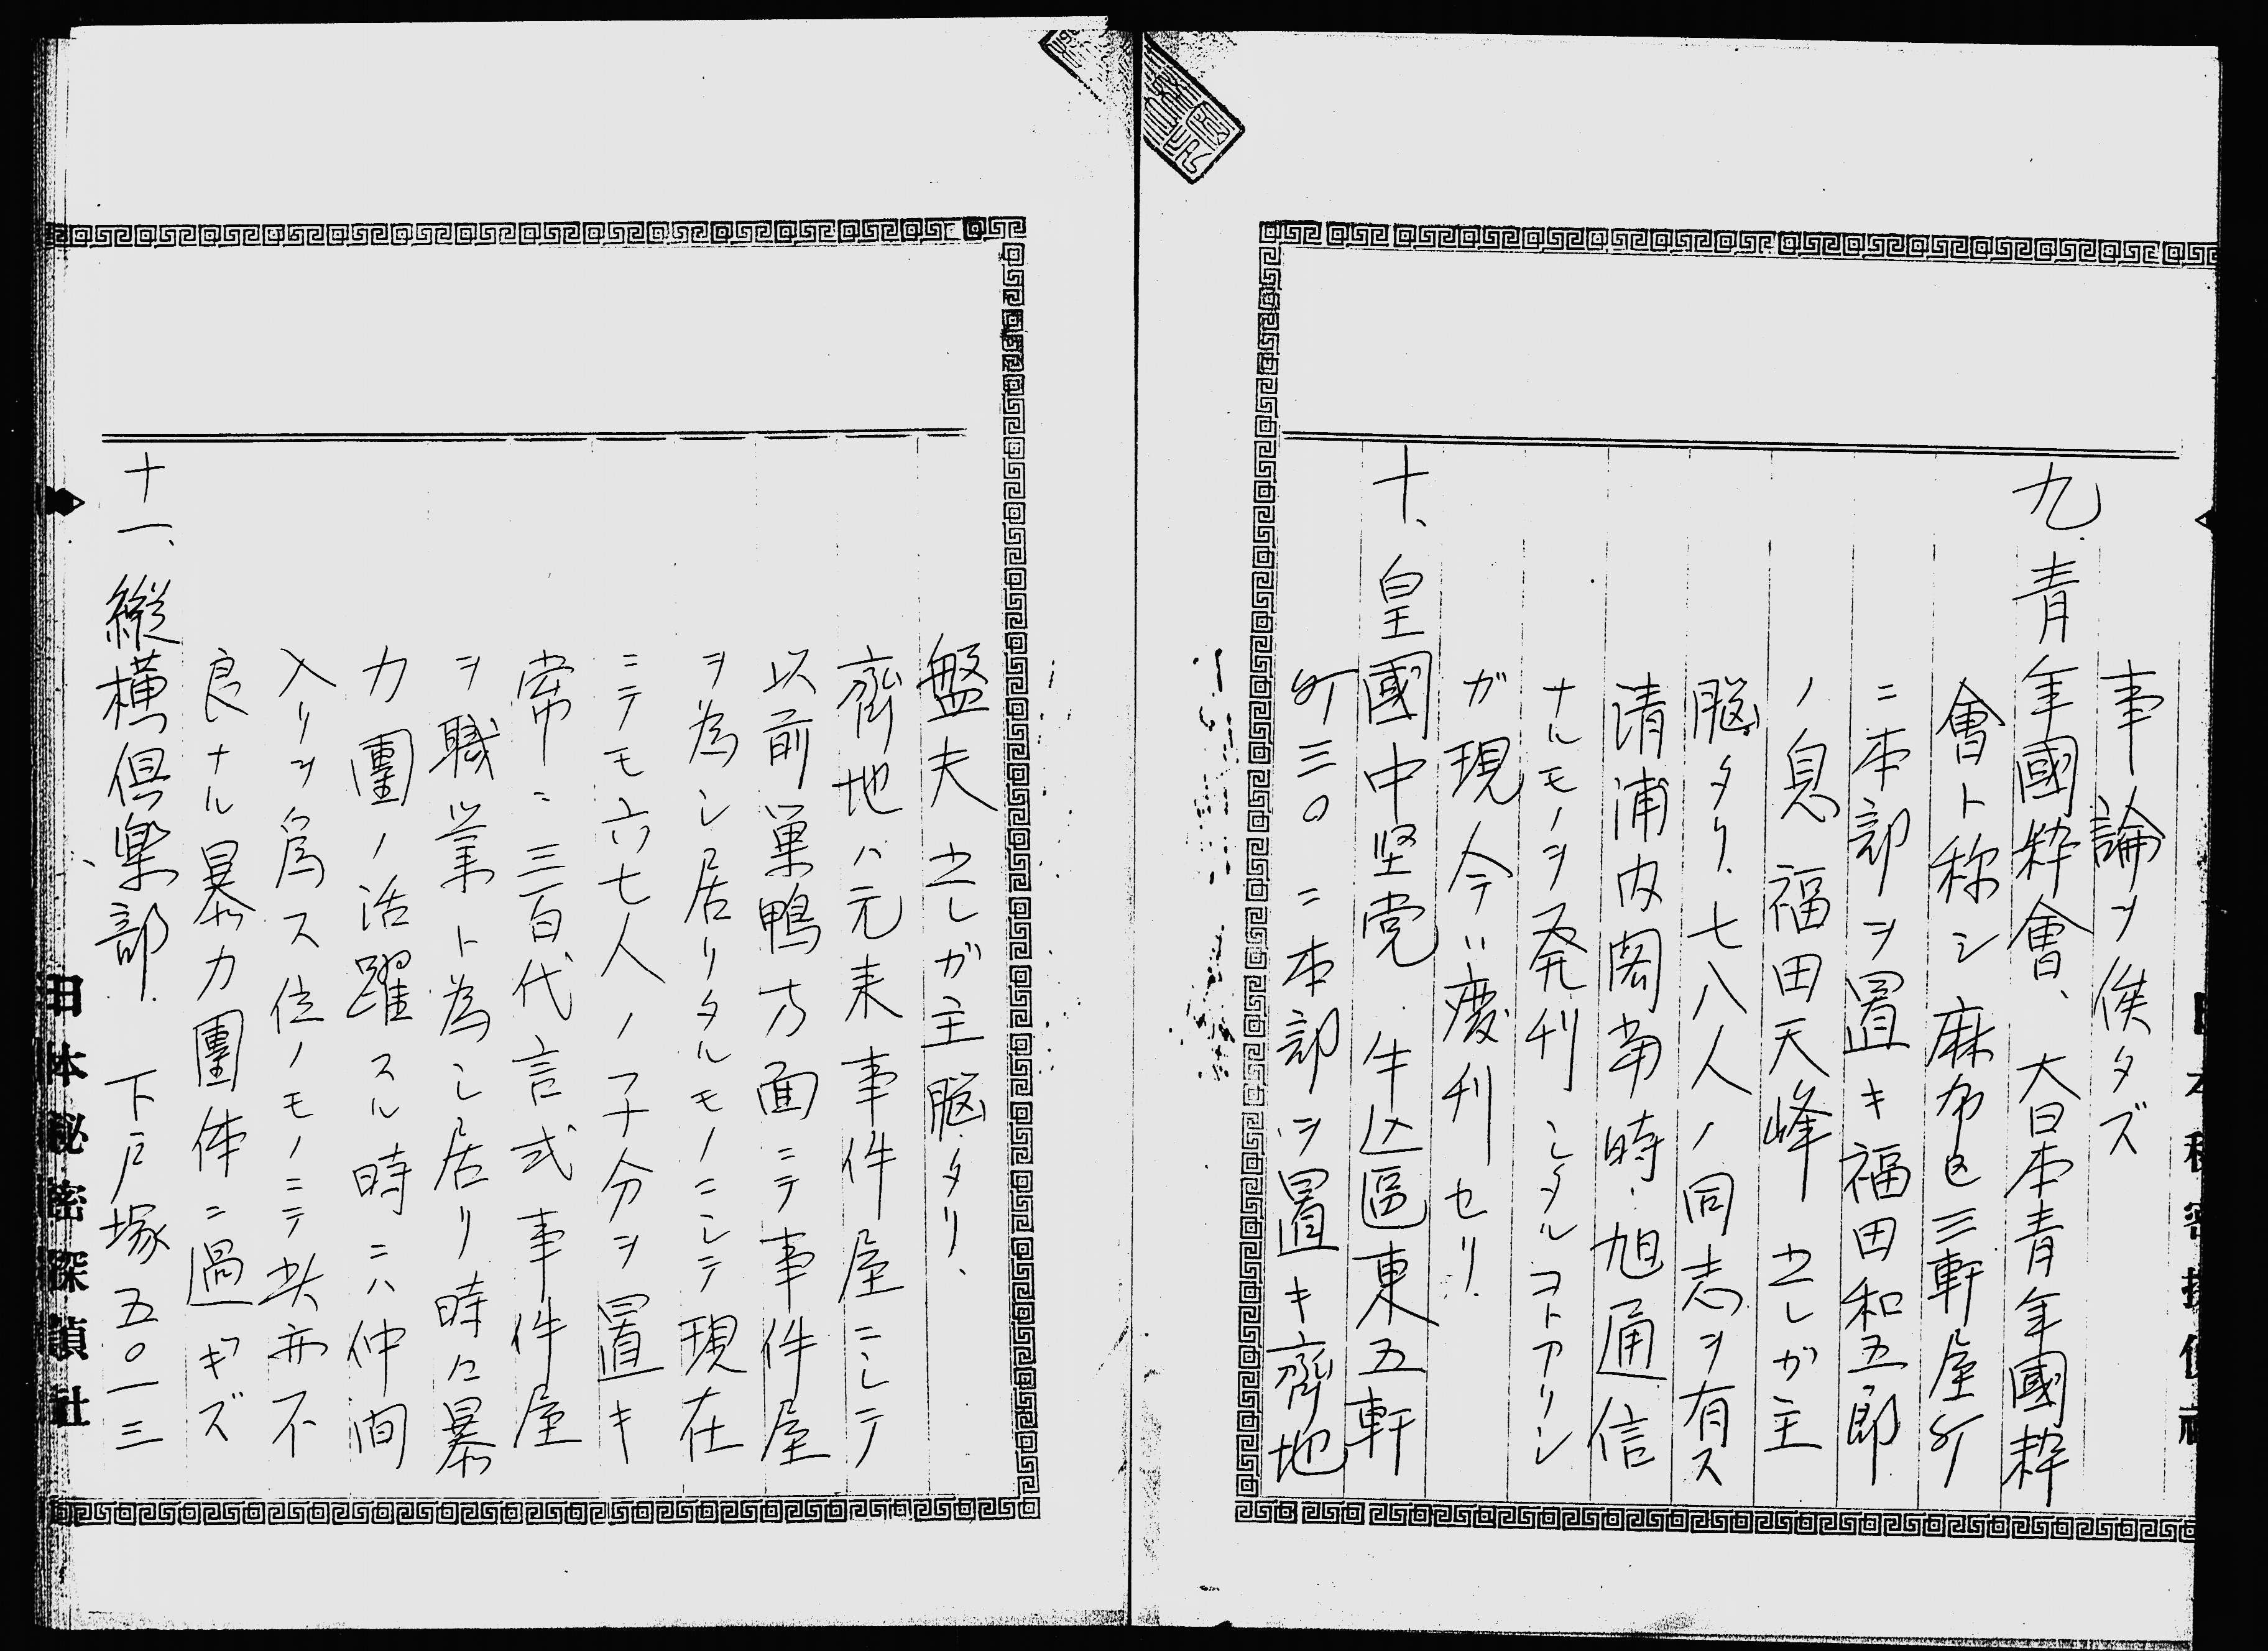 事論ヲ俟タズ
九、青年國粋會、大日本青年國粋
會ト称シ麻布区三軒屋町
ニ本部ヲ置キ福田和五郎
ノ息福田天峰之レガ主
脳タリ、七八人ノ同志ヲ有ス
清浦内閣當時、旭通信
ナルモノヲ発刊シタルコトアリシ
ガ現今ハ廃刊セリ、
十、皇國中坚党、牛込區東五軒
町三〇ニ本部ヲ置キ齊地
盤夫之レガ主脳タリ、
齊地ハ元来事件屋ニシテ
以前巣鴨方面ニテ事件屋
ヲ為シ居リタルモノニシテ現在
ニテモ六七人ノ子分ヲ置キ
常ニ三百代言式事件屋
ヲ職業ト為シ居リ時々暴
力團ノ活躍スル時ニハ仲间
入リヲ為ス位ノモノニテ此亦不
良ナル暴力團体ニ過ギズ
十一、縦横倶楽部、下戸塚五〇一三
日本秘密探偵社